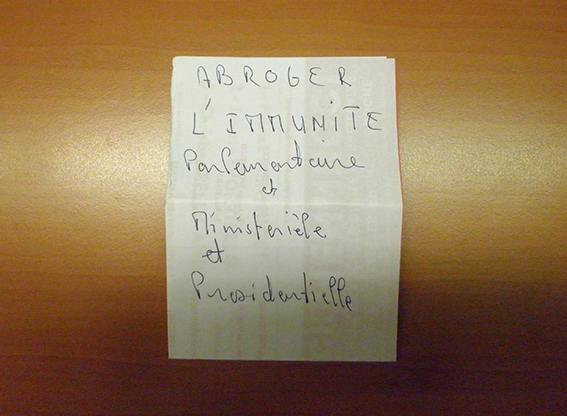 ABROGER
L'IMMUNITE
Parlementaire
et
Ministerièle
et
Presidentielle